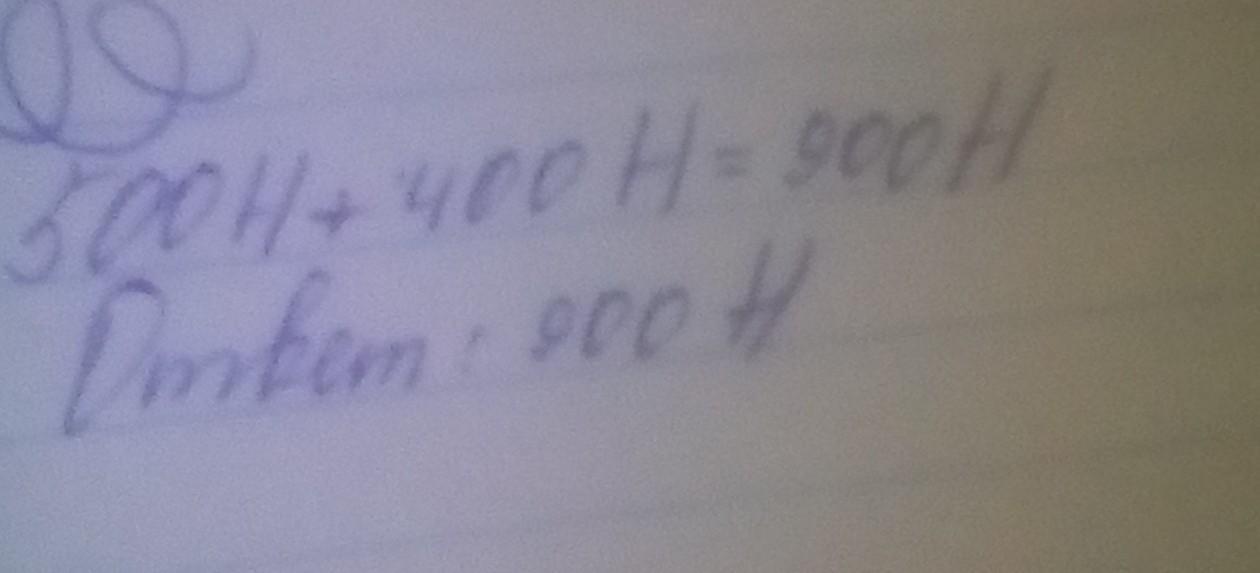 500Н + 400 Н = 900Н
Ответ: 900 Н